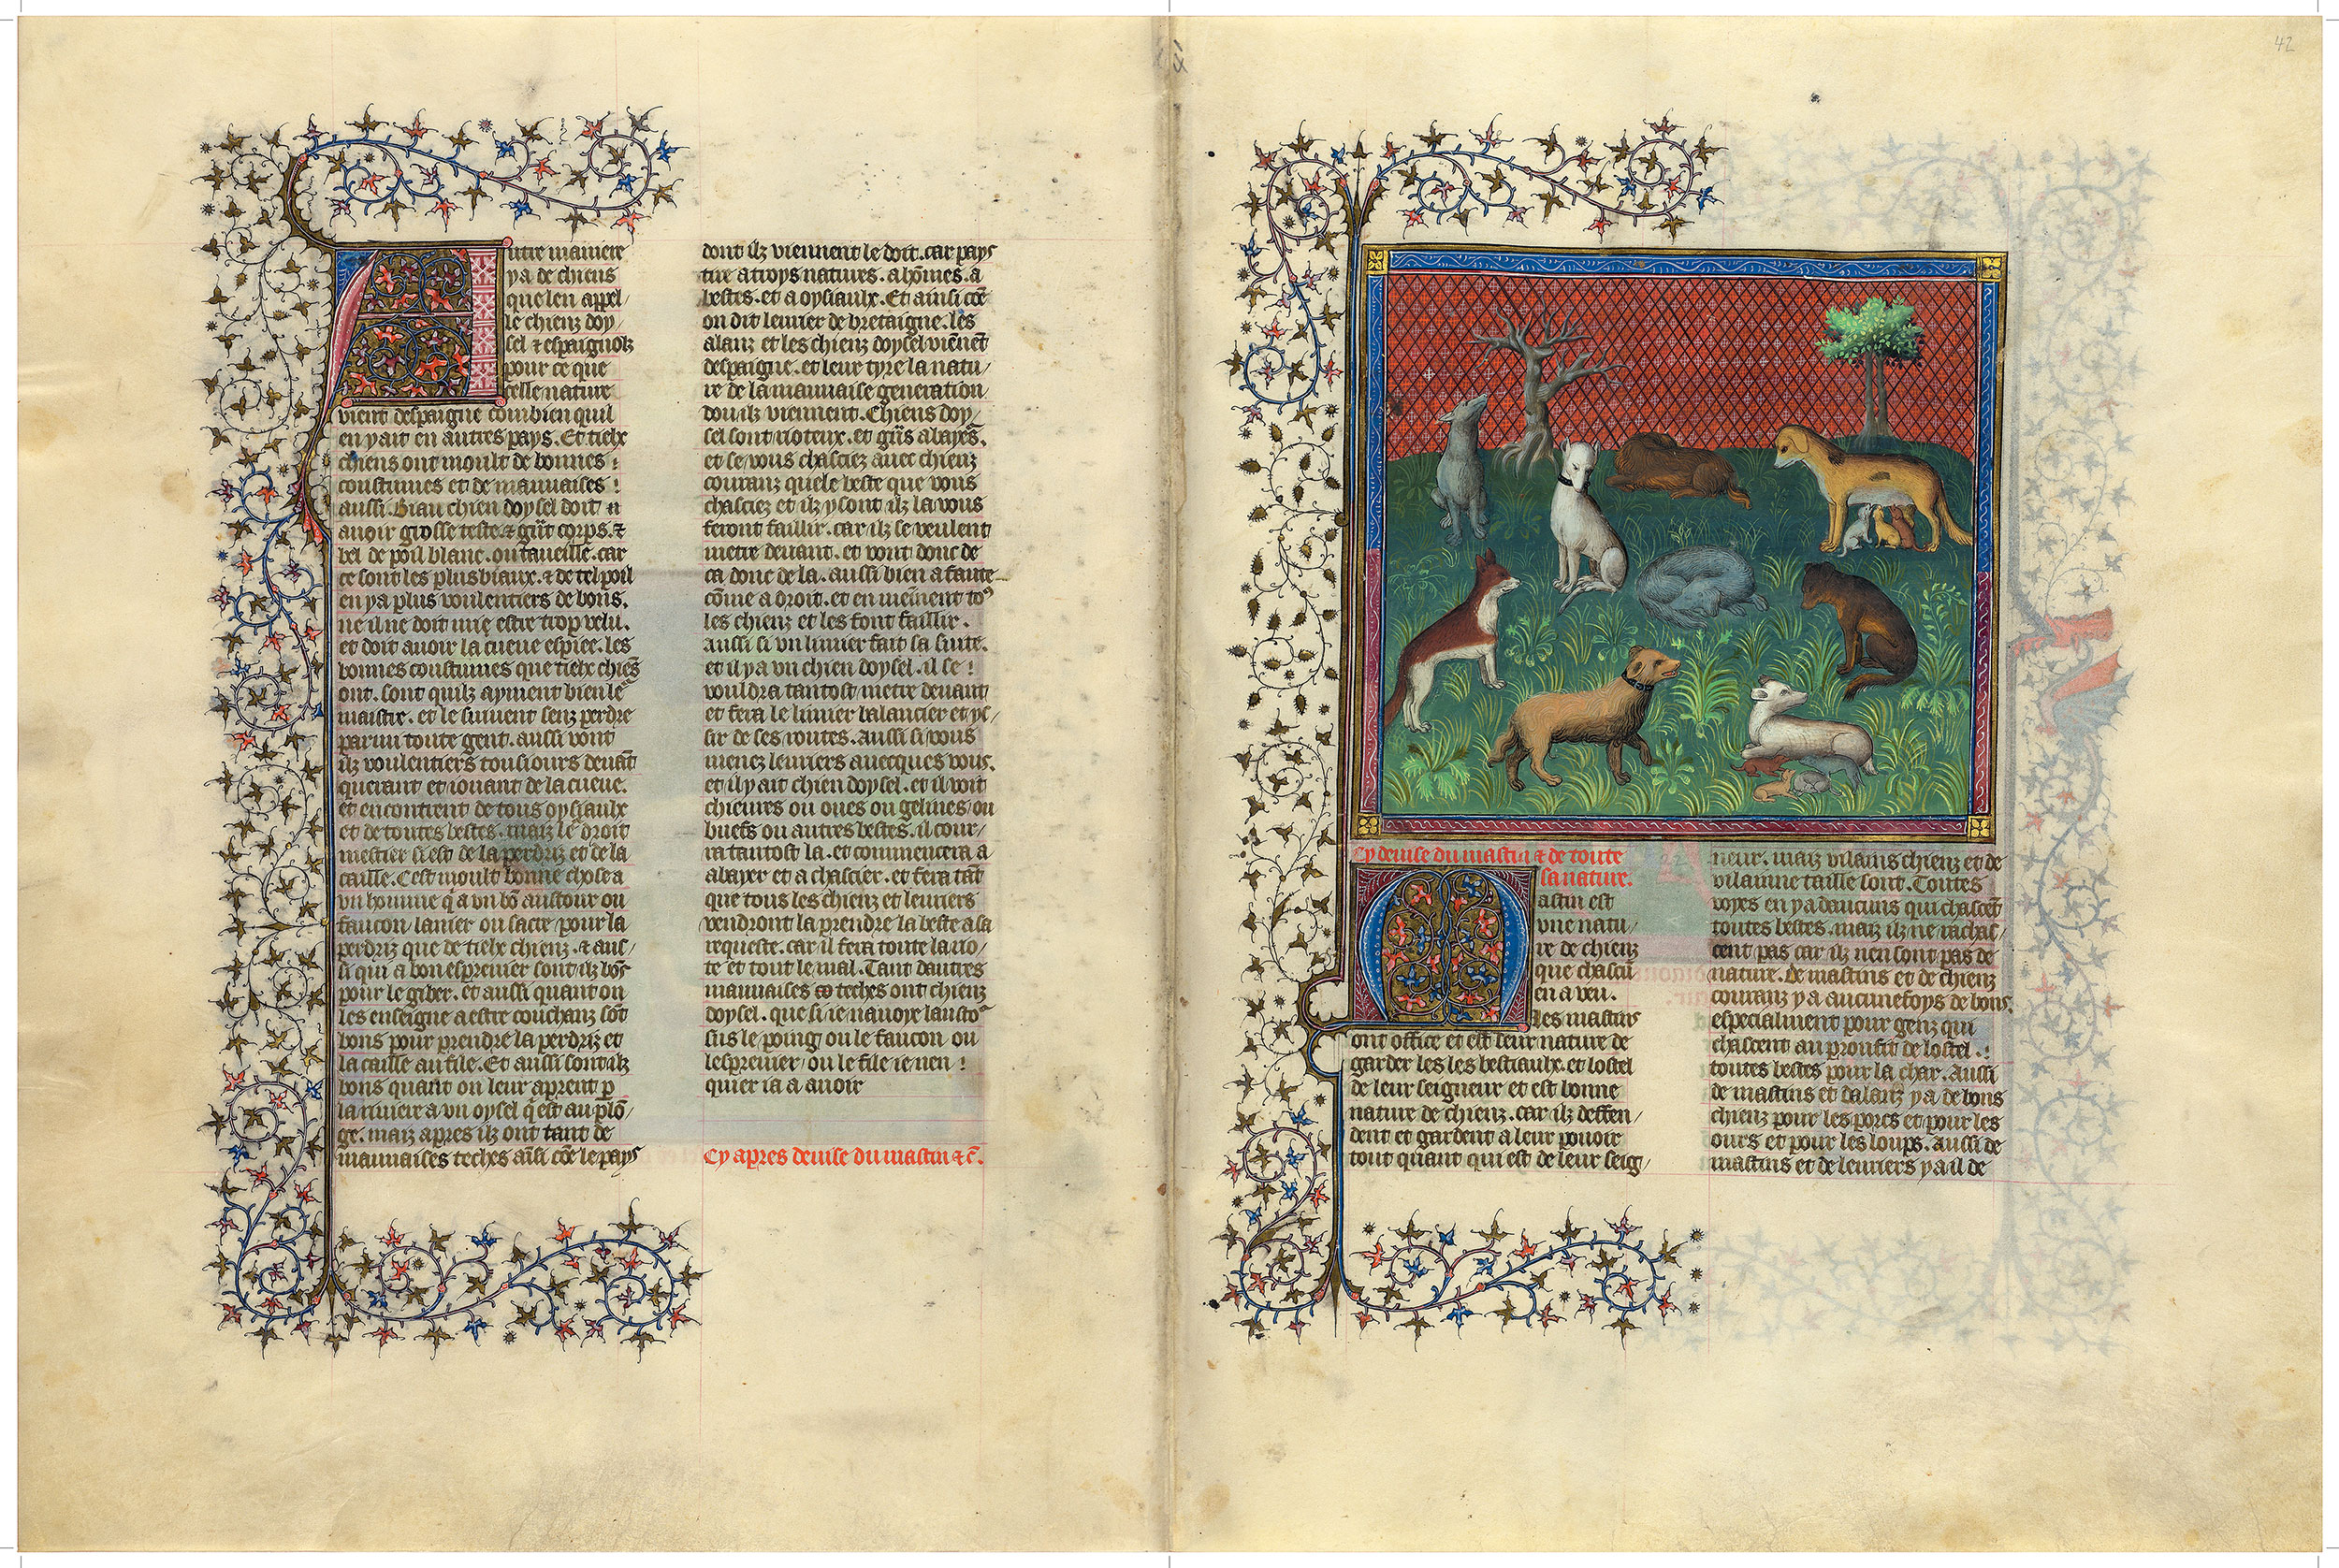 42
Autre maniere
ya de chiens
que len appel/
le chienz doy/
sel et espaignolz
pour ce que
celle nature
vient despaigne combien quil
en yait en autres pays. Et tielx
chiens ont moult de bonnes :
coustumes et de mauvaises :
aussi. Biau chien doysel doit
avoir grosse teste et grāt corps. et
bel de poil blanc. ou taueille. car
ce sont les plus biaux. et de tel poil
en ya plus voulentiers de bons.
ne il ne doit mie estre trop velu.
et doit avoir la cueue espiee. les
bonnes coustumes que tielx chiēs
ont. sont quilz ayment bien le
maistre. et le suivent senz perdre
parmi toute gent. aussi vont
ilz voulentiers tousiours devāt
querant et iouant de la cueue.
et encontrent de tous oysiaulx
et de toutes bestes. maiz le droit
mestier si est de la perdriz et de la
caille. Cest moult bonne chose a
un homme q̄ a un bō austour ou
faucon. lanier ou sacre pour la
perdriz que de tielx chienz. et aus/
si qui a bon esprevier sont ilz bōs
pour le gibier. et aussi quant on
les enseigne a estre couchanz sōt
bons pour prendre la perdriz et
la caille au file. Et aussi sont ilz
bons quant on leur aprent p
la riviere a un oysel q̄ est au plō/
ge. maiz apres ilz ont tant de
mauvaises teches aīsi cōe le pays
dont ilz viennent le doit. car pays
tire a troys natures. a hōmes. a
bestes. et a oysiaulx. Et ainsi cōe
on dit levrier de bretaigne. les
alanz et les chienz doysel vienēt
despaigne. et leur tyre la natu/
re de la mauvaise generation
dou ilz viennent. Chiens doy/
sel sont rioteux. et grās abayeᷤ.
et se vous chasciez avec chienz
couranz quele beste que vous
chasciez et ilz y sont ilz la vous
feront faillir. car ilz se veulent
metre devant. et vont donc de
ca donc de la. aussi bien a faute
cōme a droit. et en meinent to⁹
les chienz et les font faillir.
aussi si un limier fait sa suite.
et il ya un chien doysel. il se :
vouldra tantost metre devant
et fera le limier balancier et ys/
sir de ses routes. aussi si vous
menez levriers avecques vous.
et il y ait chien doysel. et il voit
chievres ou oues ou gelines/ ou
buefs ou autres bestes. il cour/
ra tantost la. et commencera a
abayer et a chascier. et fera tāt
que tous les chienz et levriers
vendront la prendre la beste a sa
requeste. car il fera toute la rio/
te et tout le mal. Tant dautres
mauvaises teches ont chienz
doysel. que si ie navoye lausto
sus le poing ou le faucon ou
lesprevier/ ou le file ie nen :
quier ia a avoir
Cy apres devise du mastin et c̄.
Cy devise du mastin et de toute
sa nature.
Mastin est
une natu/
re de chienz
que chascū
en a veu.
les mastins
ont office et est leur nature de
garder les les bestiaulx. et lostel
de leur seigneur et est bonne
nature de chienz. car ilz deffen/
dent et gardent a leur pouoir
tout quant qui est de leur seig/
neur. maiz vilains chienz et de
vilainne taille sont. Toutes
voyes en ya daucuns qui chascēt
toutes bestes. maiz ilz ne rachas/
cent pas car ilz nen sont pas de
nature. De mastins et de chienz
couranz y a aucunefoys de bons.
especialment pour genz qui
chascent au proufit de lostel . :
toutes bestes pour la char. Aussi
de mastins et dalanz ya de bons
chienz pour les pors et pour les
ours et pour les loups. aussi de
mastins et de levriers ya il de